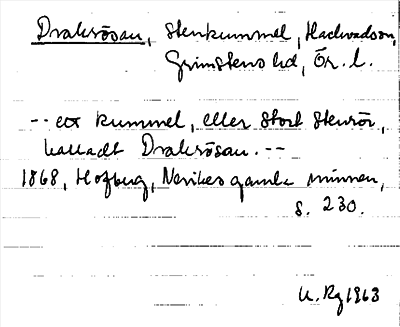 Drakrösan, stenkummel, Hackvadssn,
Grimstens hd, Ör. l.
-- ett kummel, eller stort stenrör,
kalladt Drakrösan. --
1868, Hofberg, Nerikes gamla minnen,
s. 230.
U. Rg 1963